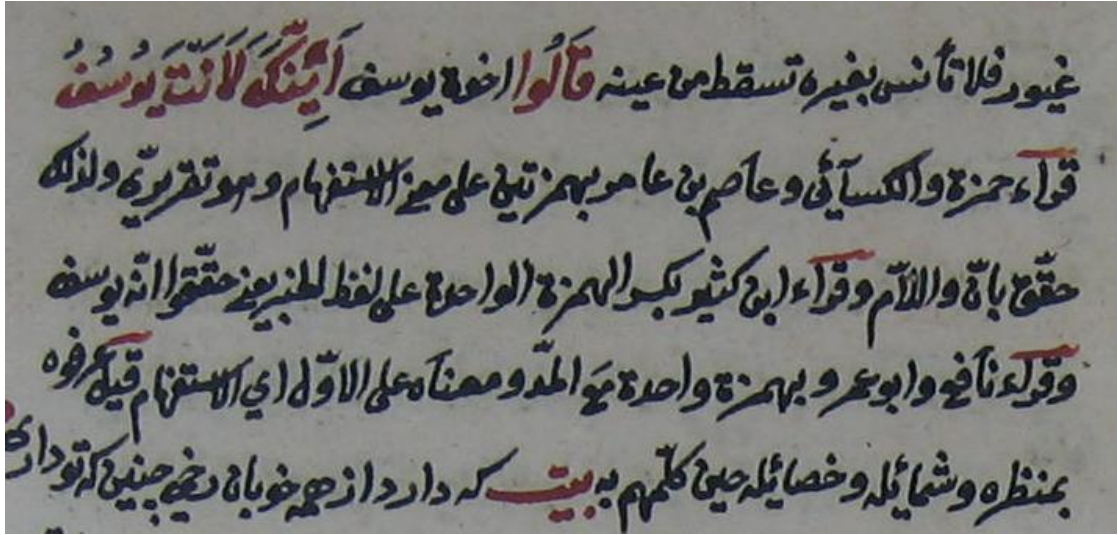 غيور فلا تأنس بغيره تسقط من عينه قَالُوا اخوة يوسف أَئِنَّكَ لَأَنْتَ يُوسُفُ
قراء حمزة والكسآئي وعاصم بن عامر بهمزتين على معنى الاستفهام وهو تقريريّ ولذلك
حقّق بانّ واللآم وقراء ابن كثير بكسر الهمزة الواحدة على لفظ الخبر يعني حقّقوا انّه يوسف
وقراء نافع وابو عمرو بهمزة واحدة مع المدّ ومعناه على الاوّل اي الاستفهام قيل عرفوه
بمنظره وشمائيله وخصائيله حين كلّمهم به بيت كه دارد از همه خوبان رخي چنين كه تو داري